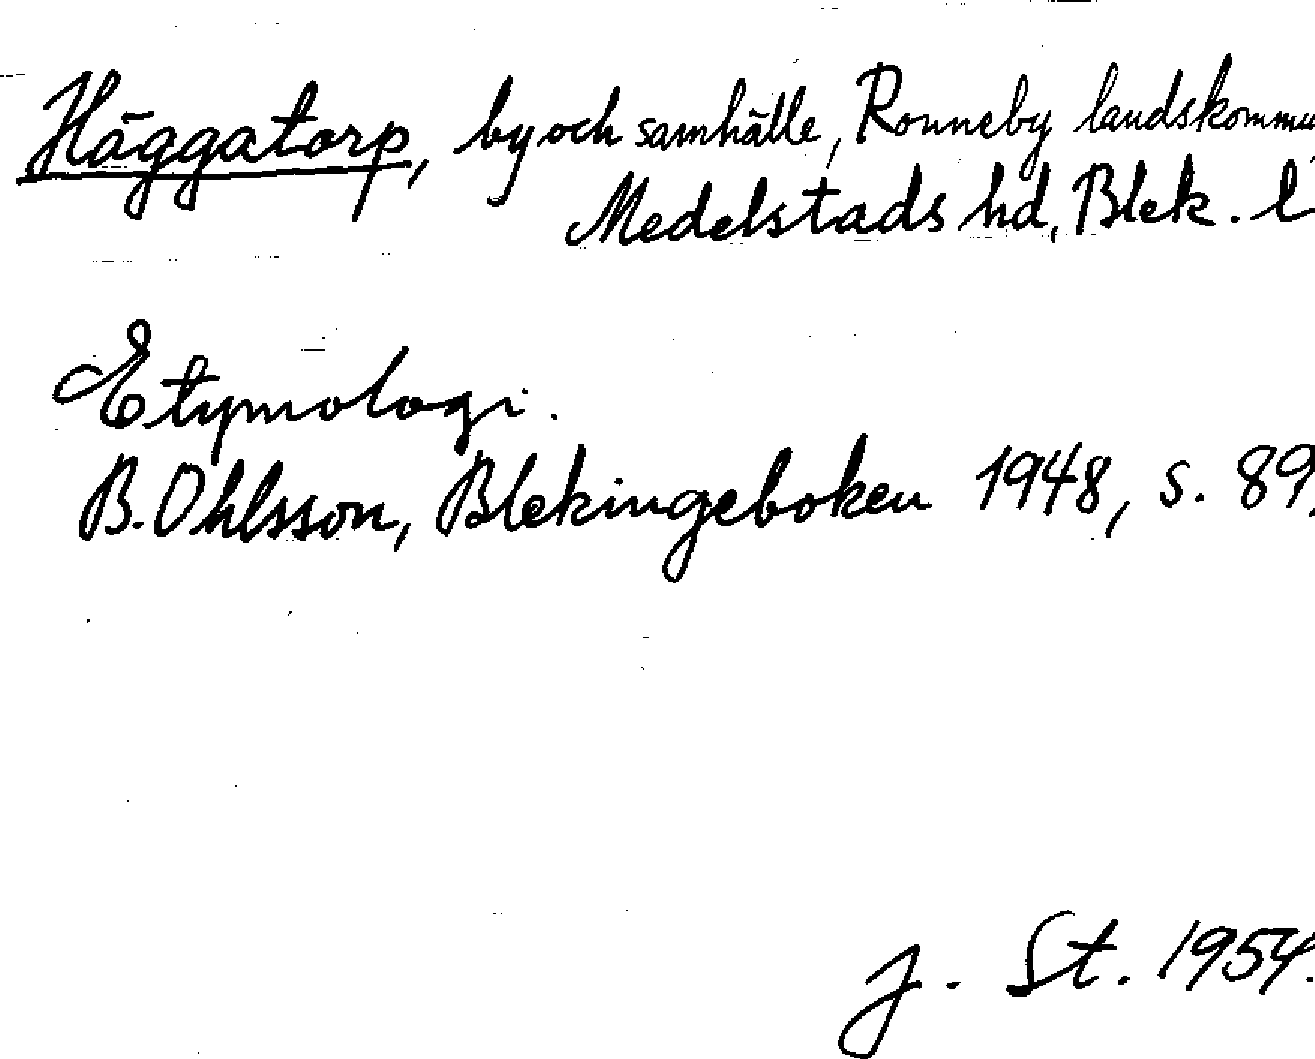 Häggatorp, by och samhälle, Ronneby landskommu
Medelstads hd, Blek. l
Etymologi.
B. Ohlsson, Blekingeboken 1948, s. 89.
J. St. 1954.